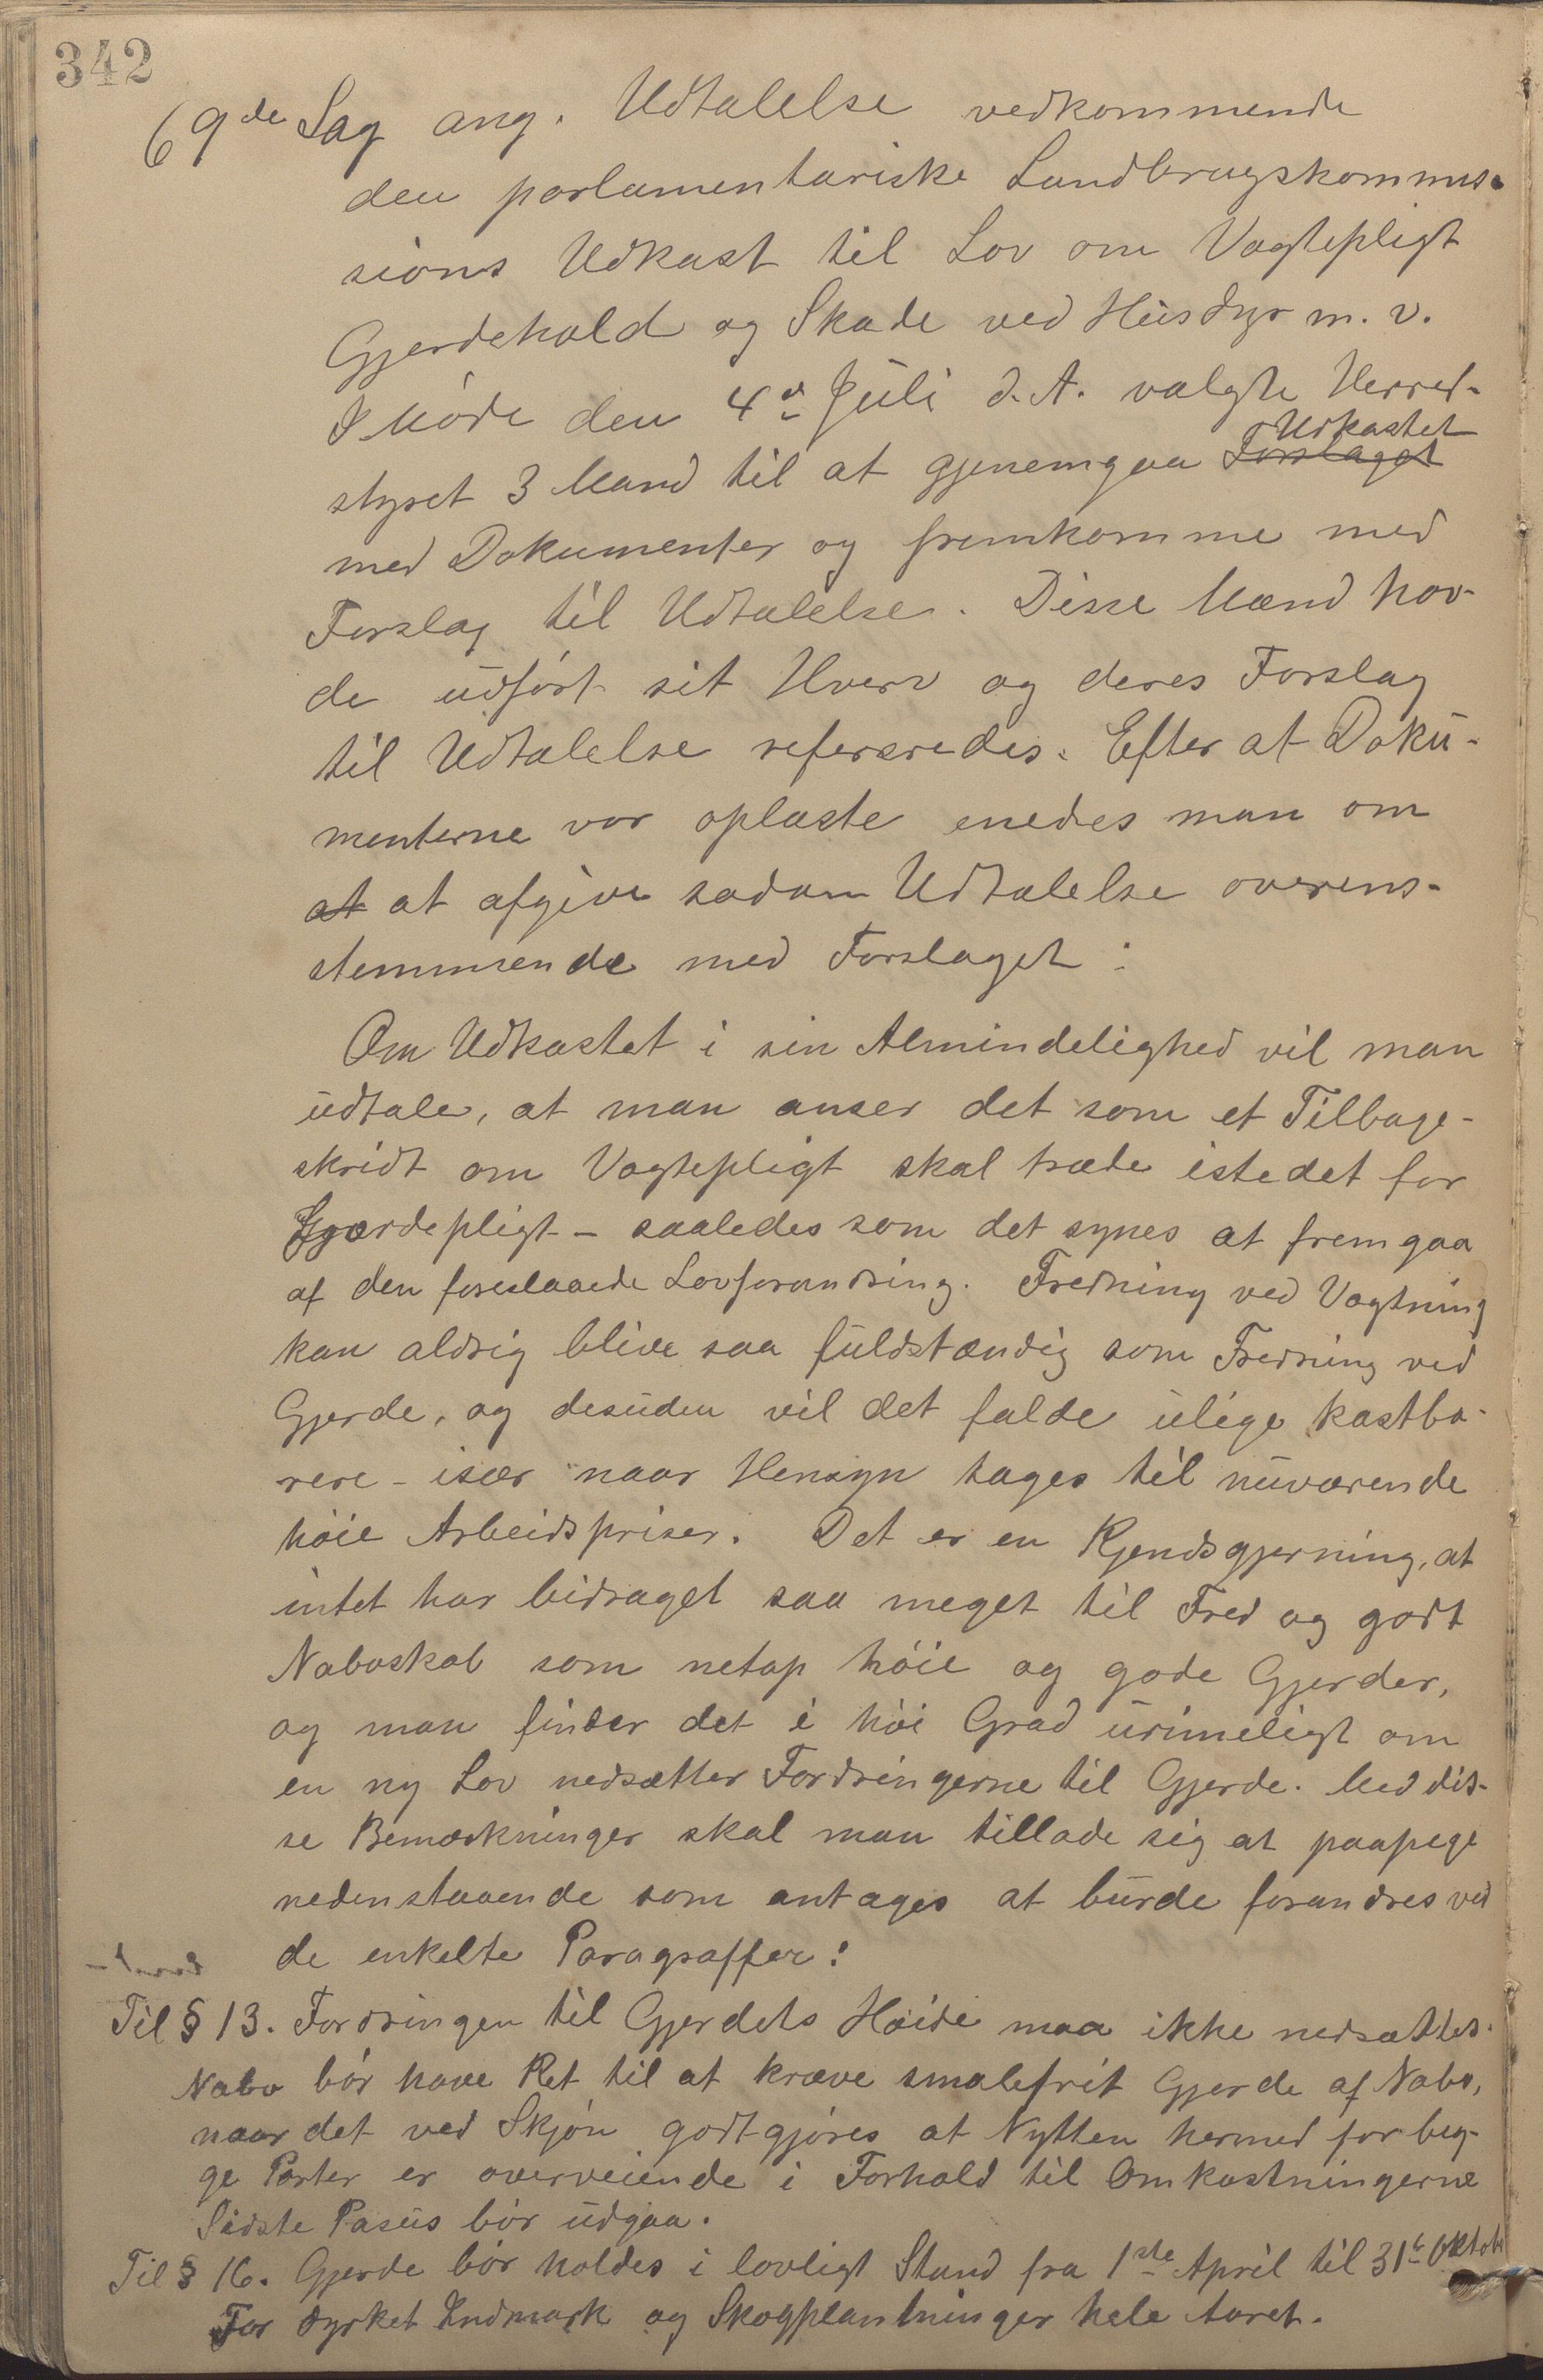 342
69de Sag ang. Udtalelse vedkommende
den parlamentariske Landbrugskommis-
sions Udkast til Lov om Vogtepligt
Gjerdehold og Skade ved Husdyr m. v.
I Møde den 4de Juli d. A. valgte Herred-
Udkastet
styret 3 Mand til at gjenemgaa Forslaget
med Dokumenter og fremkomme med
Forslag til Udtalelse. Disse Mænd hav-
de udført sit Hverv og deres Forslag
til Udtalelse refereredes. Efter at Doku-
menterne var oplæste enedes man om
at at afgive sadan Udtalelse overens-
stemmende med Forslaget:
Om Udkastet i sin Almindelighed vil man
udtale, at man anser det som et Tilbage-
skridt om Vogtepligt skal træde istedet for
Gjærdepligt - saaledes som det synes at fremgaa
af den foreslaaede Lovforandring. Fredning ved Vogtning
kan aldrig blive saa fuldstændig som Fredning ved
Gjerde, og desuden vil det falde ulige kostba-
rere - især naar Hensyn tages til nuværende
høie Arbeidspriser. Det er en Kjendsgjerning, at
intet har bidraget saa meget til Fred og godt
Naboskab som netop høie og gode Gjerder,
og man finder det i høi Grad urimeligt om
en ny Lov nedsætter Fordringerne til Gjerde. Med dis-
se Bemærkninger skal man tillade sig at paapege
nedenstaaende som antages at burde forandres ved
de enkelte Paragraffer:
Til § 13. Fordringen til Gjerdets Høide maa ikke nedsættes.
Nabo bør have Ret til at kræve smalefrit Gjerde af Nabo,
naar det ved Skjøn godtgjøres at Nytten hermed for beg-
ge Parter er overveiende i Forhold til Omkostningerne
Sidste Pasus bør udgaa.
Til § 16. Gjerde bør holdes i lovligt Stand fra 1ste April til 31te Oktob
For dyrket Indmark og Skogplantninger hele Aaret.